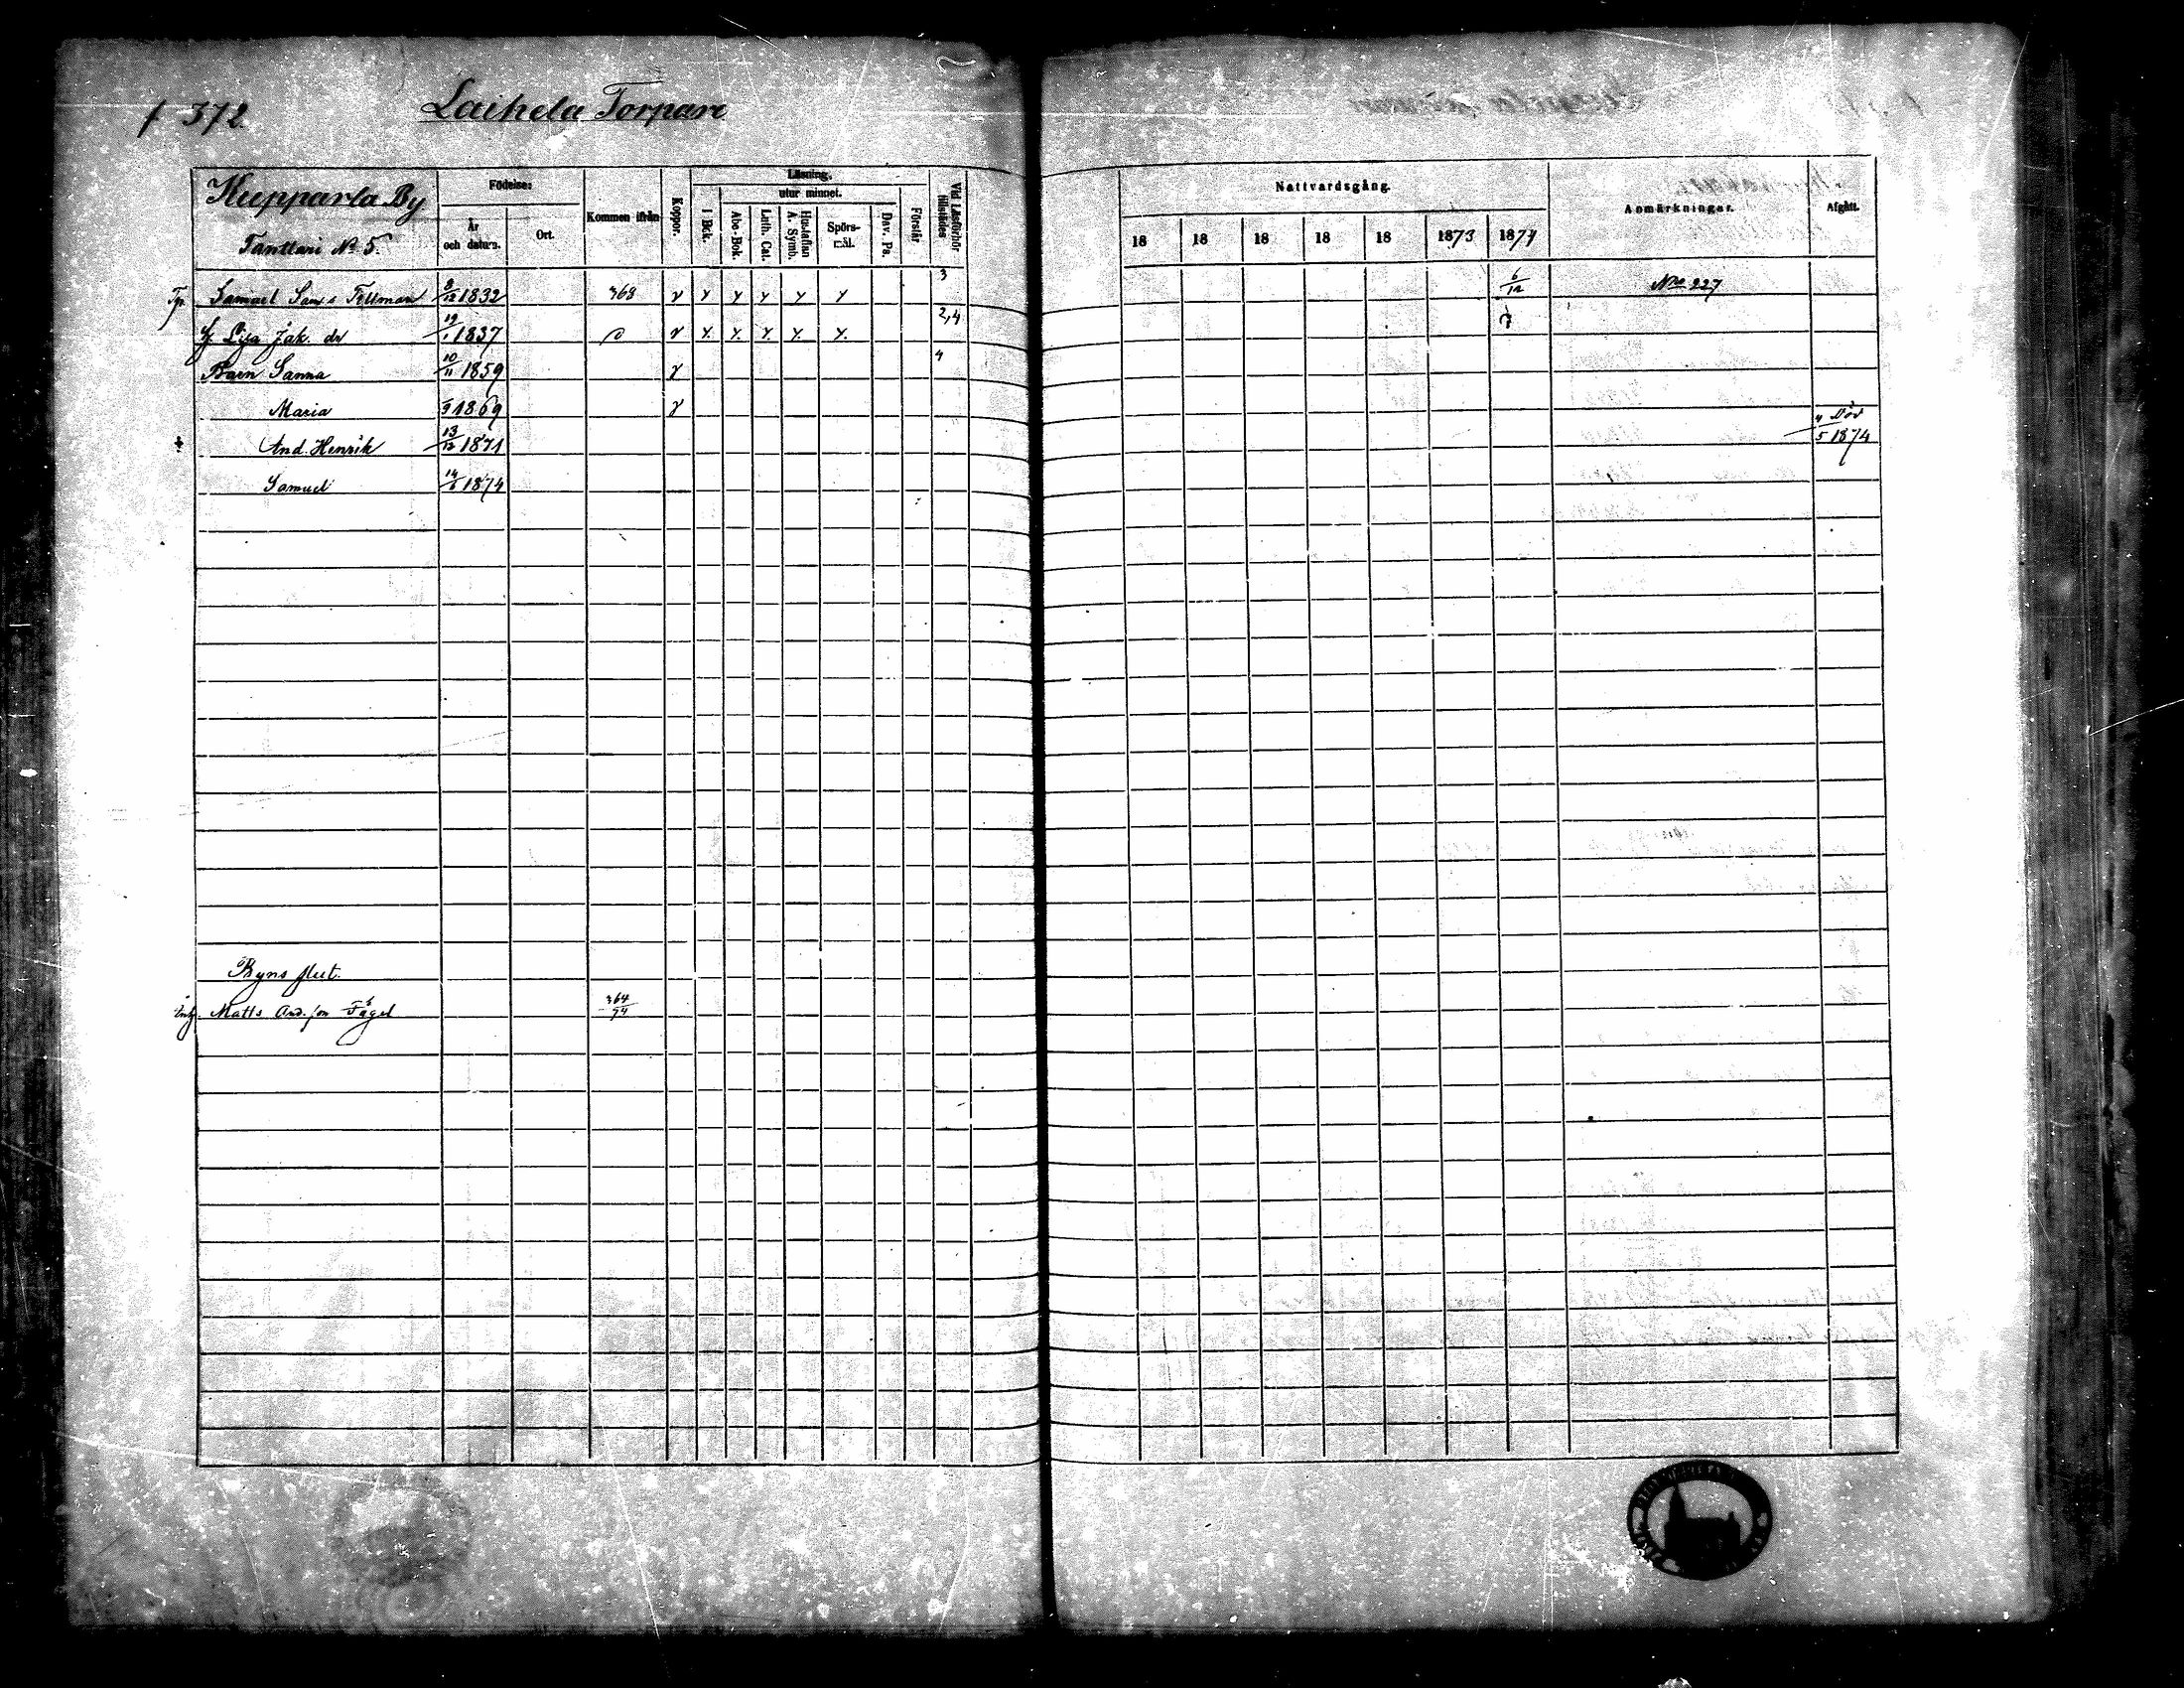 f 372. Laihela Torpare
Kupparla By
Tanttari No 5.
Födelse:
År och datum.
Ort.
Kommen ifrån
Koppor.
Läsning.
utur minnet.
I Bok.
Abc-Bok.
Luth. Cat.
Hustaflan A. Symb.
Spörsmål.
Dav. Ps.
Förstår
Vid Läsförhör tillstädes
Nattvardsgång.
18 18 18 18 18 1873 1874
Anmärkningar.
Afgått.
Tp. Samuel Sam. s Fellman 8/12 1832 368 v y y y y y 3 6/12 No 227
H. Lisa Jak. dr 19/1 1837 v y. y. y. y. y. 2,4
Barn Sanna 10/11 1859 v 4
Maria 1869 v
And. Henrik 13/12 1871 Död 4/5 1874
Samuel 14/6 1874
Byns slut.
Matts And. son Fågel 364/74